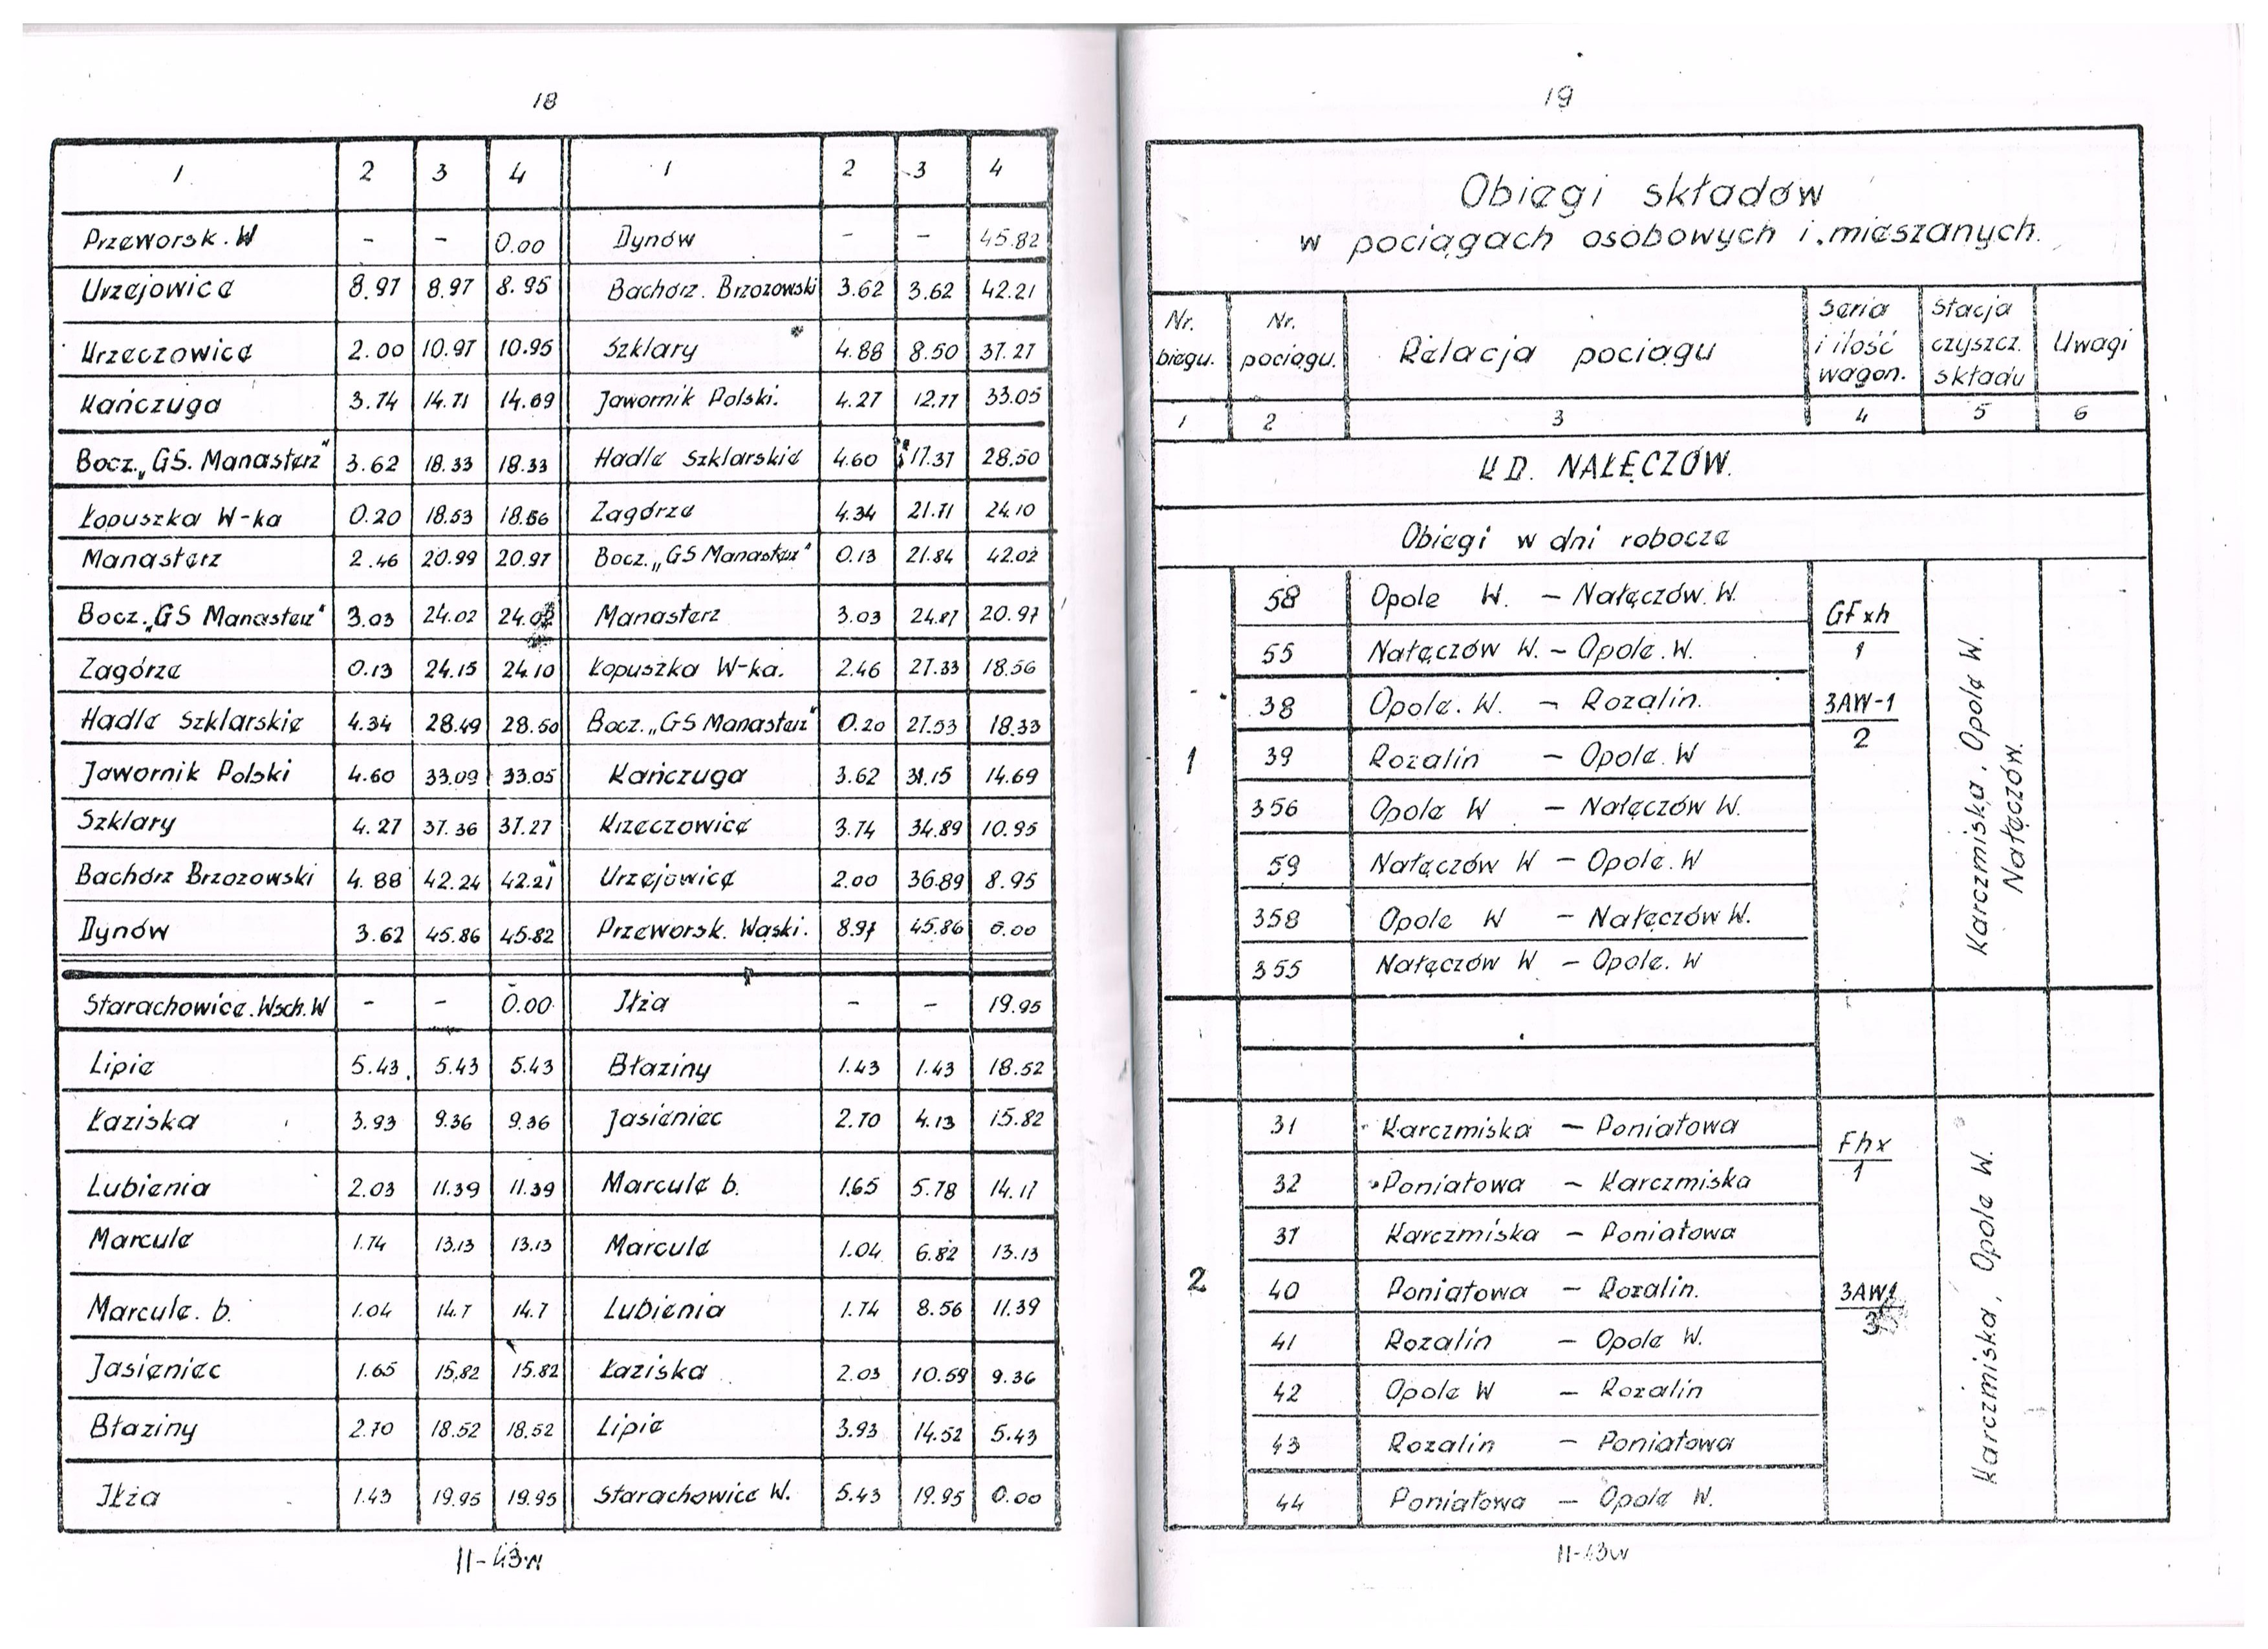 18
1 2 3 4 1 2 3 4
Przeworsk. W - - 0.00 Dynów - - 45.82
Urzejowice 8.97 8.97 8.95 Bachórz. Brzozowski 3.62 3.62 42.21
Krzeczowice 2.00 10.97 10.95 Szklary 4.88 8.50 37.27
Kańczuga 3.74 14.71 14.69 Jawornik Polski. 4.27 12.77 33.05
Bocz. „GS. Manasterz" 3.62 18.33 18.33 Hadle Szklarskie 4.60 17.37 28.50
Łopuszka W-ka 0.20 18.53 18.56 Zagórze 4.34 21.71 24.10
Manasterz 2.46 20.99 20.97 Bocz. „GS Manasterz" 0.13 21.84 42.02
Bocz. „GS Manasterz" 3.03 24.02 24.02 Manasterz 3.03 24.87 20.97
Zagórze 0.13 24.15 24.10 Łopuszka W-ka. 2.46 27.33 18.56
Hadle Szklarskie 4.34 28.49 28.50 Bocz. „GS Manasterz" 0.20 27.53 18.33
Jawornik Polski 4.60 33.09 33.05 Kańczuga 3.62 31.15 14.69
Szklary 4.27 37.36 37.27 Krzeczowice 3.74 34.89 10.95
Bachórz Brzozowski 4.88 42.24 42.21 Urzejowice 2.00 36.89 8.95
Dynów 3.62 45.86 45.82 Przeworsk. Wąski. 8.97 45.86 0.00
Starachowice. Wsch. W - - 0.00 Iłża - - 19.95
Lipie 5.43 5.43 5.43 Błaziny 1.43 1.43 18.52
Łaziska 3.93 9.36 9.36 Jasieniec 2.70 4.13 15.82
Lubienia 2.03 11.39 11.39 Marcule b. 1.65 5.78 14.17
Marcule 1.74 13.13 13.13 Marcule 1.04 6.82 13.13
Marcule. b. 1.04 14.7 14.7 Lubienia 1.74 8.56 11.39
Jasieniec 1.65 15.82 15.82 Łaziska 2.03 10.59 9.36
Błaziny 2.70 18.52 18.52 Lipie 3.93 14.52 5.43
Iłża 1.43 19.95 19.95 Starachowice W. 5.43 19.95 0.00
II-43w
19
Obiegi składów
w pociągach osobowych i mieszanych.
Nr. biegu. Nr. pociągu. Relacja pociągu Seria i ilość wagon. Stacja czyszcz. składu Uwagi
1 2 3 4 5 6
K D. NAŁĘCZÓW.
Obiegi w dni robocze
1
58 Opole W. - Nałęczów. W.
55 Nałęczów W. - Opole. W.
38 Opole. W. - Rozalin.
39 Rozalin - Opole. W
356 Opole W - Nałęczów W.
59 Nałęczów W - Opole. W
358 Opole W - Nałęczów W.
355 Nałęczów W - Opole. W
GFxh
1
3AW-1
2
Karczmiska, Opole W.
Nałęczów.
2
31 Karczmiska - Poniatowa
32 Poniatowa - Karczmiska
37 Karczmiska - Poniatowa
40 Poniatowa - Rozalin.
41 Rozalin - Opole W.
42 Opole W - Rozalin
43 Rozalin - Poniatowa
44 Poniatowa - Opole W.
Fhx
1
3AW1
3
Karczmiska, Opole W.
II-43w